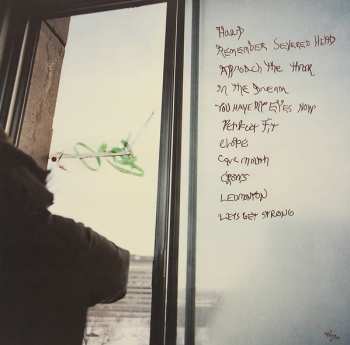 HOARD
REMEMBER SEVERED HEAD
APPROACH THE THROR
IN THE DREAM
YOU HAVE MY EYES NOW
PERFECT FIT
ELOPE
CAVE MOUTH
LEDMONTON
LETS GET STRONG